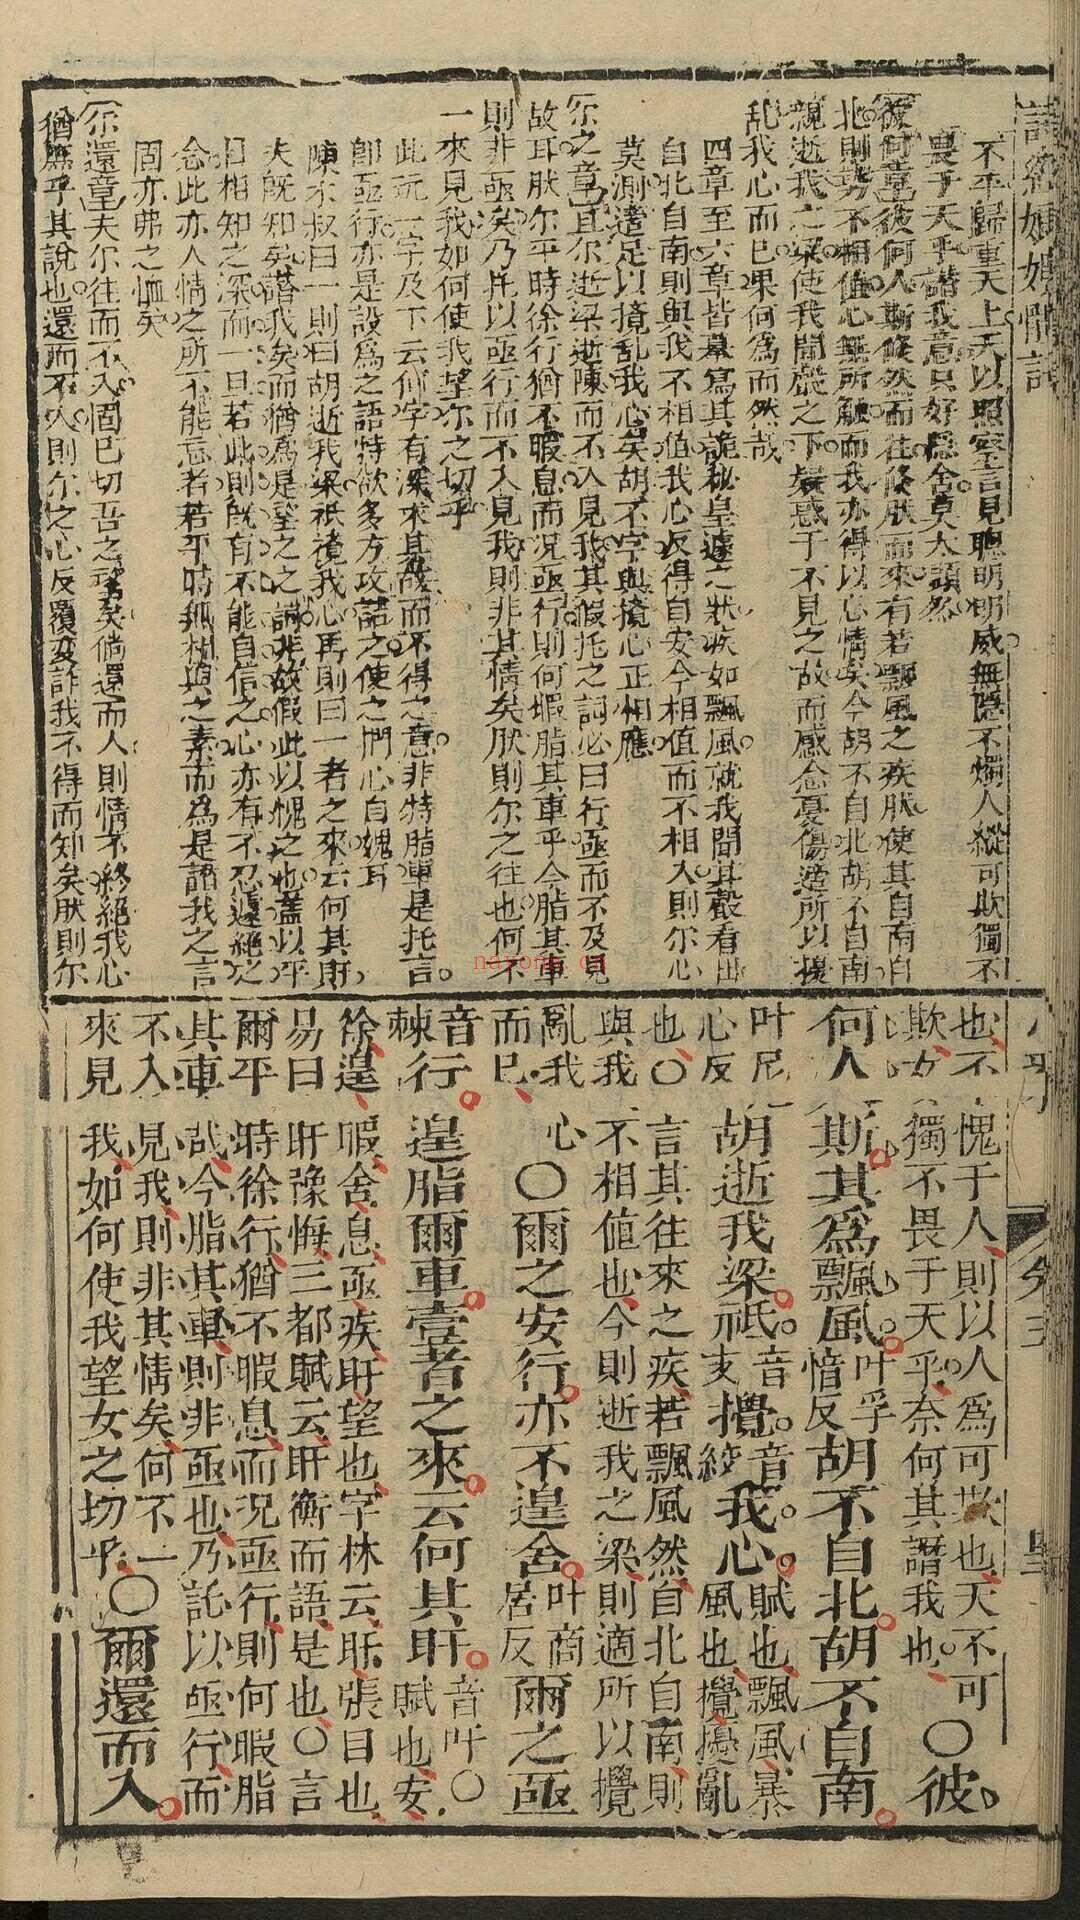 不平歸重天上天以照察言見聰明明威無隱不燭人縱可欺獨不
畏于天乎譖我意只好隱舍莫太顯然
彼何章彼何人斯倐然而往倐肰而來有若飄風之疾肰使其自南自
北則勢不相値心無所觸而我亦得以忘情矣今胡不自北胡不自南
視逝我之梁使我聞聲之下疑惑于不見之故而感念憂傷適所以擾
乱我心而已果何為而然哉
四章至六章皆摹寫其詭秘皇遽之狀疾如飄風就我聞其聲看出
自北自南則與我不相值我心反得自安今相值而不相入則尔心
莫測遣足以攪乱我心矣胡不字與攪心正相應
尔之章且尔逝梁逝陳而不入見我其假托之詞必曰行亟而不及見
故耳肰尔平時徐行猶不暇息而况亟行則何暇脂其車乎今脂其車
則非亟矣乃托以亟行而不入見我則非其情矣肰則尔之往也何不
一來見我如何使我望尔之切乎
此玩一字及下云何字有深求其故而不得之意非特脂車是托言
卽亟行亦是設爲之語特欲多方攻詰之使之捫心自媿耳
陳木叔曰一則曰胡逝我梁祇攪我心再則曰一者之來云何其盱
夫旣知矣譖我矣而猶爲是望之之詞非故假此以愧之也蓋以平
日相知之深而一旦若此則旣有不能自信之心亦有不忍遽絕之
念此亦人情之所不能忘者若平時無相與之素而為是譖我之言
固亦弗之恤矣
尔還章夫尔往而不入固已切吾之望矣倘還而入則情不終絕我心
猶爲乎其說也還而不入則尔之心反覆变詐我不得而知矣肰則尔
也不愧于人則以人爲可欺也天不可
欺女獨不畏于天乎奈何其譖我也○彼
何人斯其爲飄風叶孚愔反胡不自北胡不自南
叶尼心反胡逝我梁祇音支攪音絞我心賦也飄風暴風也攪擾亂
也○言其往來之疾若飄風然自北自南則
與我不相値也今則逝我之梁則適所以攪
亂我心而已○爾之安行亦不遑舍叶商居反爾之亟
音棘行遑脂爾車壹者之來云何其盱音吁○賦也安
徐遑暇舍息亟疾盱望也字林云盱張目也
易曰盱豫悔三都賦云盱衡而語是也○言
爾平時徐行猶不暇息而况亟行則何暇脂
其車哉今脂其車則非亟也乃託以亟行而
不入見我則非其情矣何不一
來見我如何使我望女之切乎○爾還而入